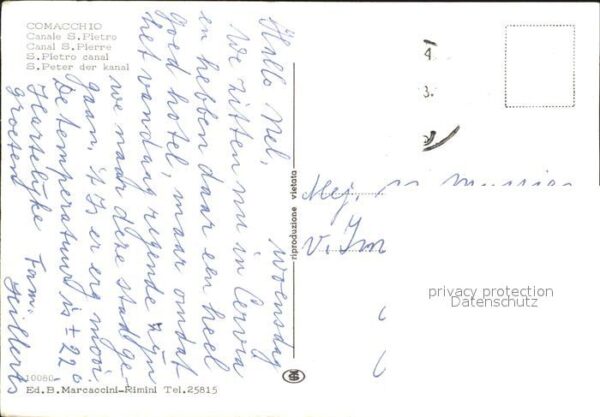 COMACCHIO
Canale S. Pietro
Canal S. Pierre
S. Pietro canal
S. Peter der kanal
woensdag
Hallo Nel,
We zitten nu in Cervia
en hebben daar een heel
goed hotel, maar omdat
het vandaag regende zijn
we naar deze stad ge-
gaan, 't Is er erg mooi.
De temperatuur is ± 22°
Hartelijke
groeten Fam.
Hilberts
riproduzione vietata
4
3.
Mej.
v.
privacy protection
Datenschutz
10080
Ed. B. Marcaccini-Rimini Tel. 25815